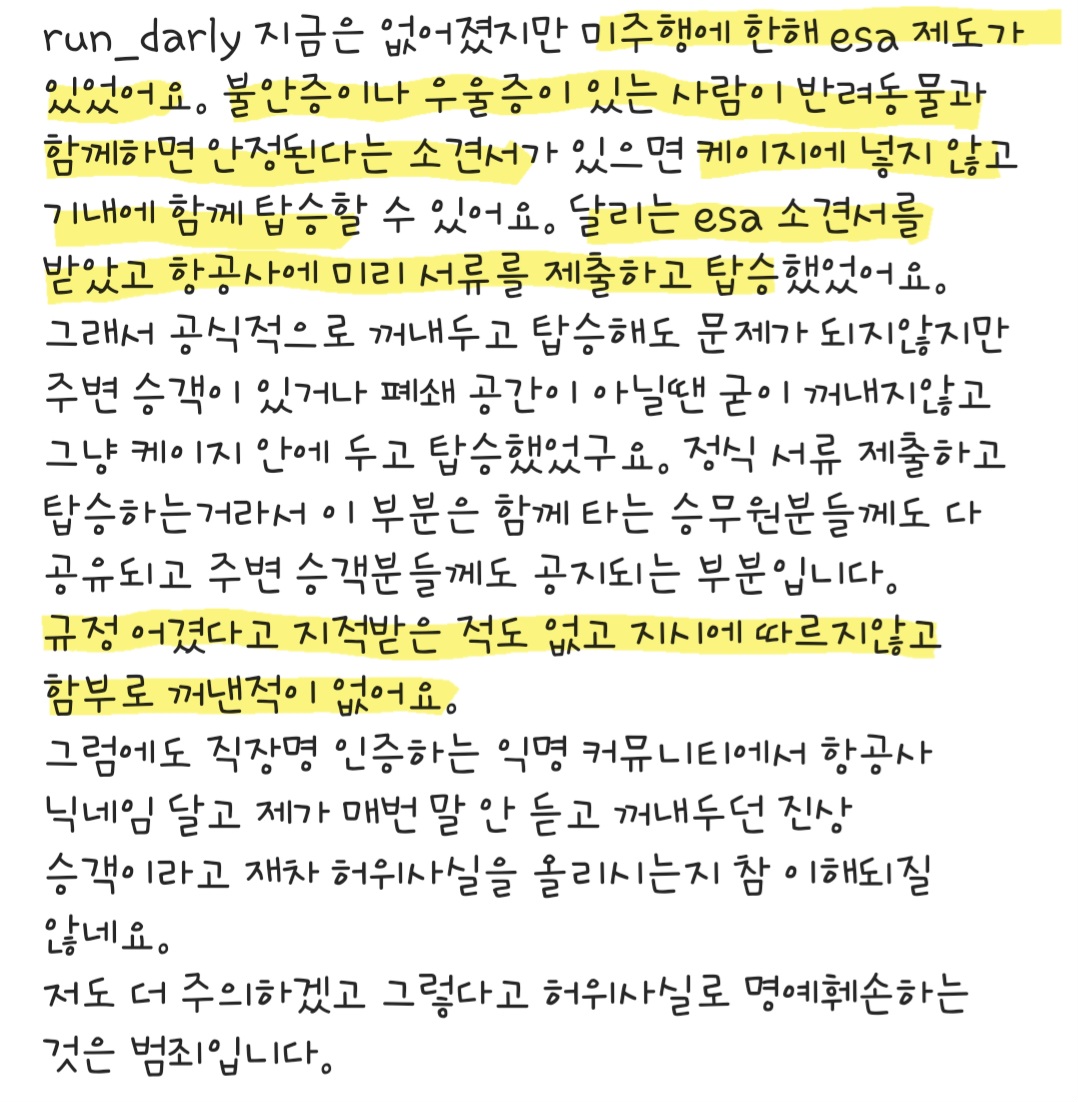 run_darly 지금은 없어졌지만 미주행에 한해 esa 제도가
있었어요. 불안증이나 우울증이 있는 사람이 반려동물과
함께하면 안정된다는 소견서가 있으면 케이지에 넣지 않고
기내에 함께 탑승할 수 있어요. 달리는 esa 소견서를
받았고 항공사에 미리 서류를 제출하고 탑승했었어요.
그래서 공식적으로 꺼내두고 탑승해도 문제가 되지않지만
주변 승객이 있거나 폐쇄 공간이 아닐땐 굳이 꺼내지않고
그냥 케이지 안에 두고 탑승했었구요. 정식 서류 제출하고
탑승하는거라서 이 부분은 함께 타는 승무원분들께도 다
공유되고 주변 승객분들께도 공지되는 부분입니다.
규정 어겼다고 지적받은 적도 없고 지시에 따르지않고
함부로 꺼낸적이 없어요.
그럼에도 직장명 인증하는 익명 커뮤니티에서 항공사
닉네임 달고 제가 매번 말 안 듣고 꺼내두던 진상
승객이라고 재차 허위사실을 올리시는지 참 이해되질
않네요.
저도 더 주의하겠고 그렇다고 허위사실로 명예훼손하는
것은 범죄입니다.